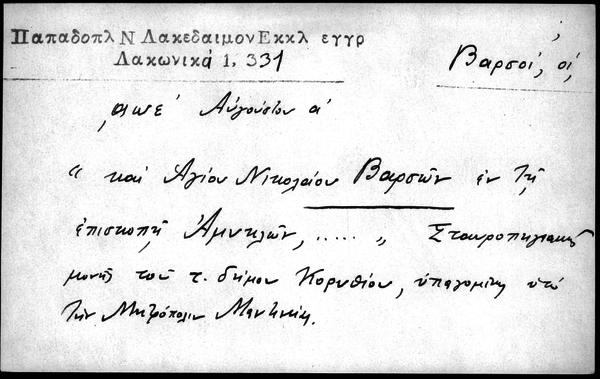 Παπαδοπλ Ν Λακεδαιμον Εκκλ εγγρ
Λακωνικά 1, 331
Βαρσοί, οἱ
͵αωπε΄ Αὐγούστου α΄
“ καὶ Ἁγίου Νικολάου Βαρσῶν ἐν τῇ
ἐπισκοπῇ Ἀμυκλῶν, ..... „ Σταυροπηγιακῆς
μονῆς τοῦ τ. δήμου Κορυθίου, ὑπαγομένης ὑπὸ
τὴν Μητρόπολιν Μαντινείας.